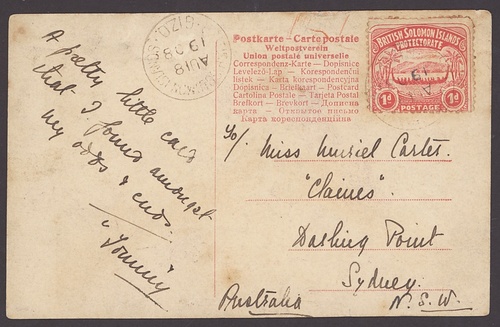 A pretty little card
that I found amongst
my odds & ends.
"Tommy"
GIZO.
AU 18
1908
Postkarte – Cartepostale
Weltpostverein
Union postale universelle
Correspondenz-Karte – Dopisnice
Levelező-Lap. – Korespondenční
lístek – Karta korespondencyjna
Dopisnica – Briefkaart – Postcard
Cartolina Postale – Tarjeta Postal
Brefkort – Brevkort – Дописна
карта – Открытое письмо
Карта кореспонденційна
BRITISH SOLOMON ISLANDS
PROTECTORATE
1d POSTAGE 1d
To/. Miss Muriel Carter.
"Claines".
Darling Point
Sydney.
Australia N.S.W.